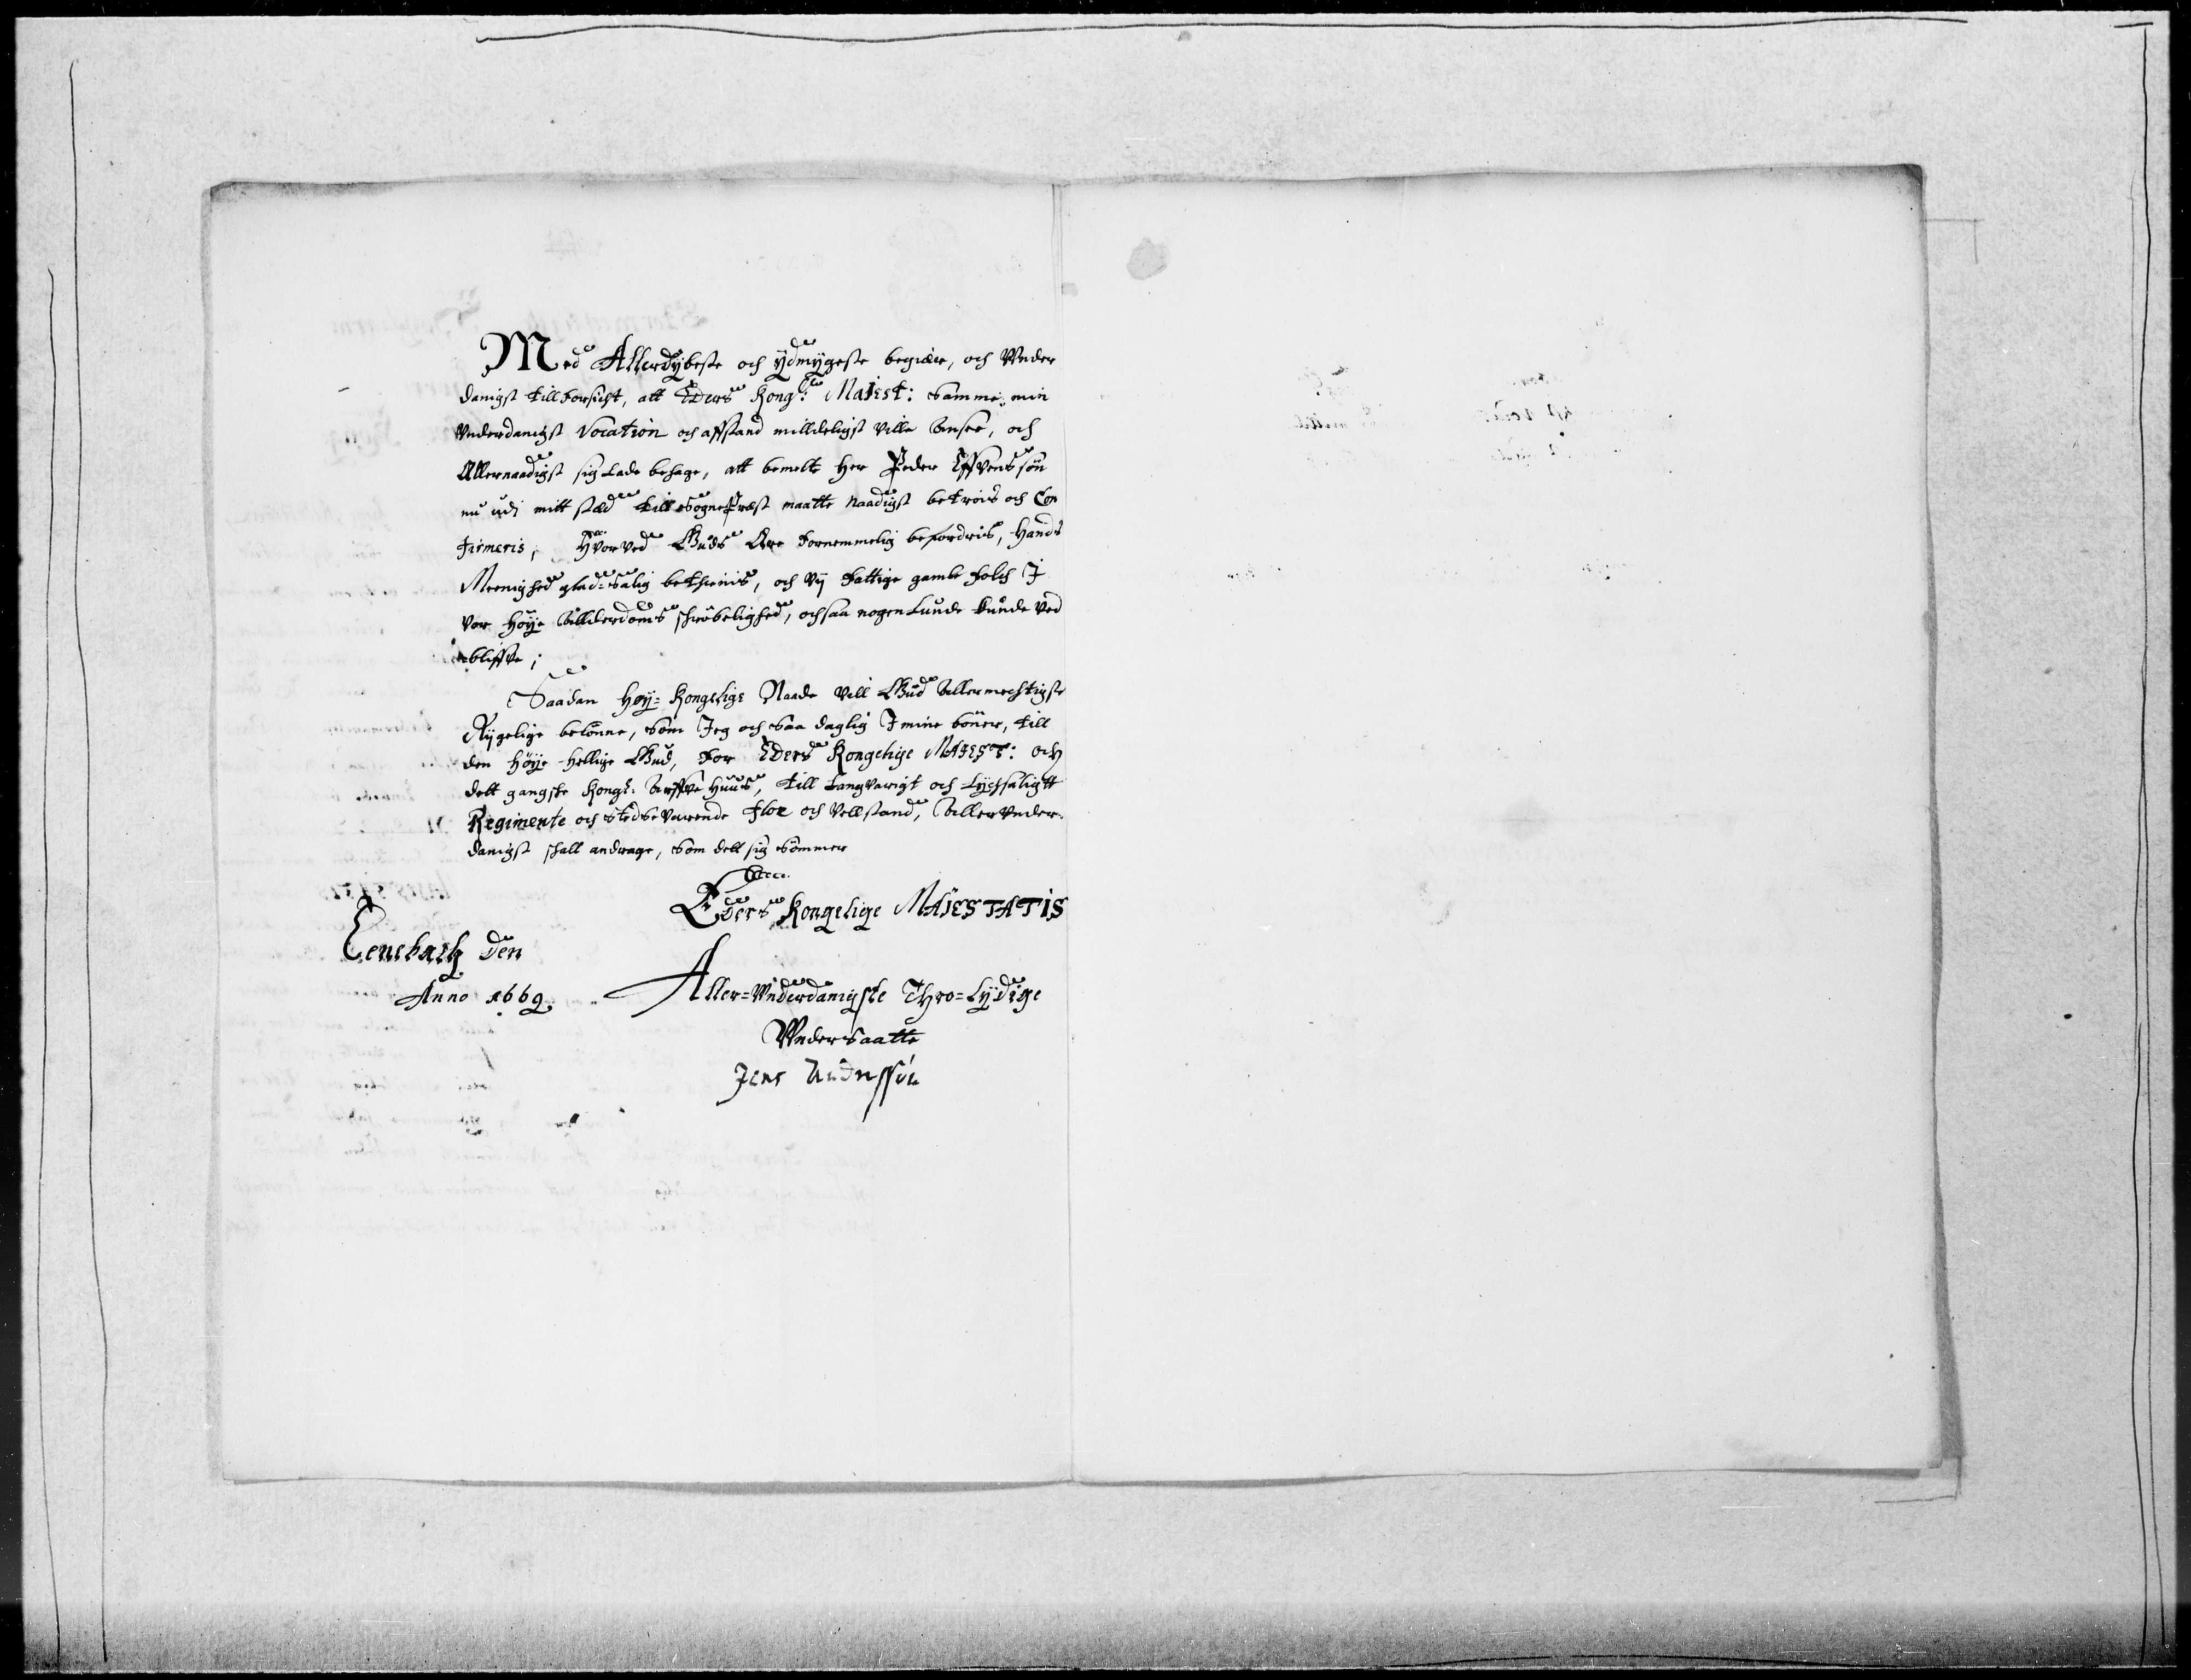 Med Allerdybeste och ydmygeste begiære, och Vnder
danigst tillforsicht, att Eders Kongl: Maiest: samme min
Vnderdanigst Vocation och affstand milldeligst ville ansee, och
Allernaadigst sig Lade behage, att bemelte Her Peder Effvenssøn
nu udi mitt sted till SognePrest maatte Naadigst betrois och Con
firmeris, Hvor ved Guds Ære Fornemmelig befordris, Hands
Meenighed glad-salig bethienis, och Vy Fattige gamle Folch I
Vor Høye Allderdoms schrøbelighed, och saa nogenlunde kunde Ved
bliffve;
Saadan Høy-Kongelige Naade Vill Gud Allermechtigste
Rygelige belønne, som Jeg och saa daglig I mine bøner, till
den Høye Hellige Gud, For Eders Kongelige Maiest: och
dett gangske Kongl: Arffve Huus, till Langvarigt och Lychsaligtt
Regimente och stedsevarende Flor och Vellstand, Aller Vnder-
danigst schall andrage, som dett sig sømmer
Eders Kongelige MAIESTATIS
den
Anno 1669.
Aller-Vnderdanigste Thro-Lydige
Vndersaatte
Jens